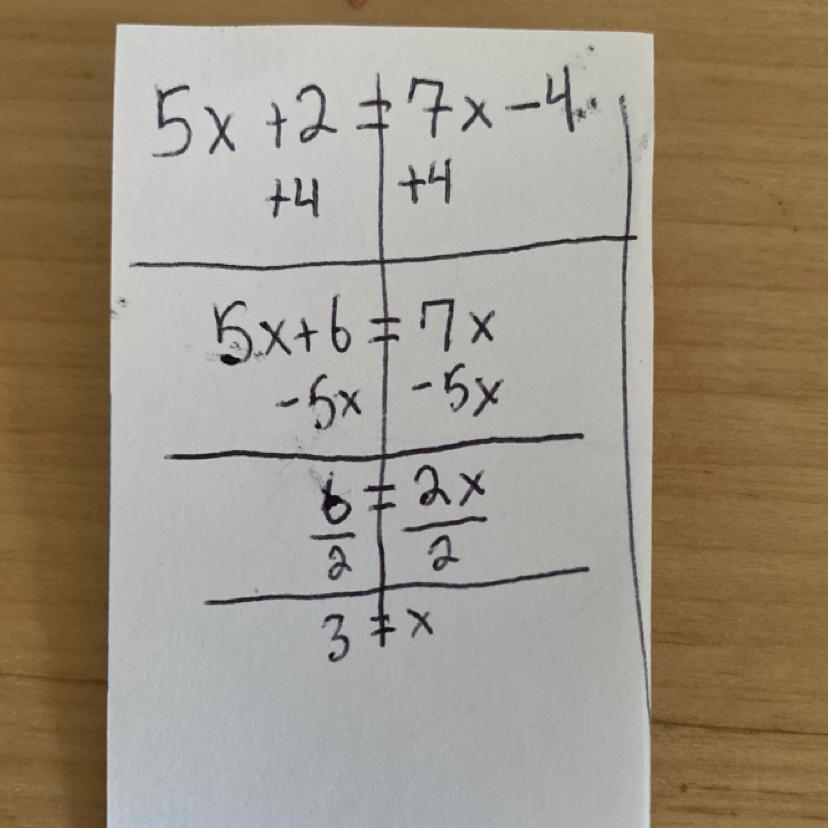 5x + 2 = 7x - 4
+4 +4
5x + 6 = 7x
-5x -5x
6 = 2x
2 2
3 = x